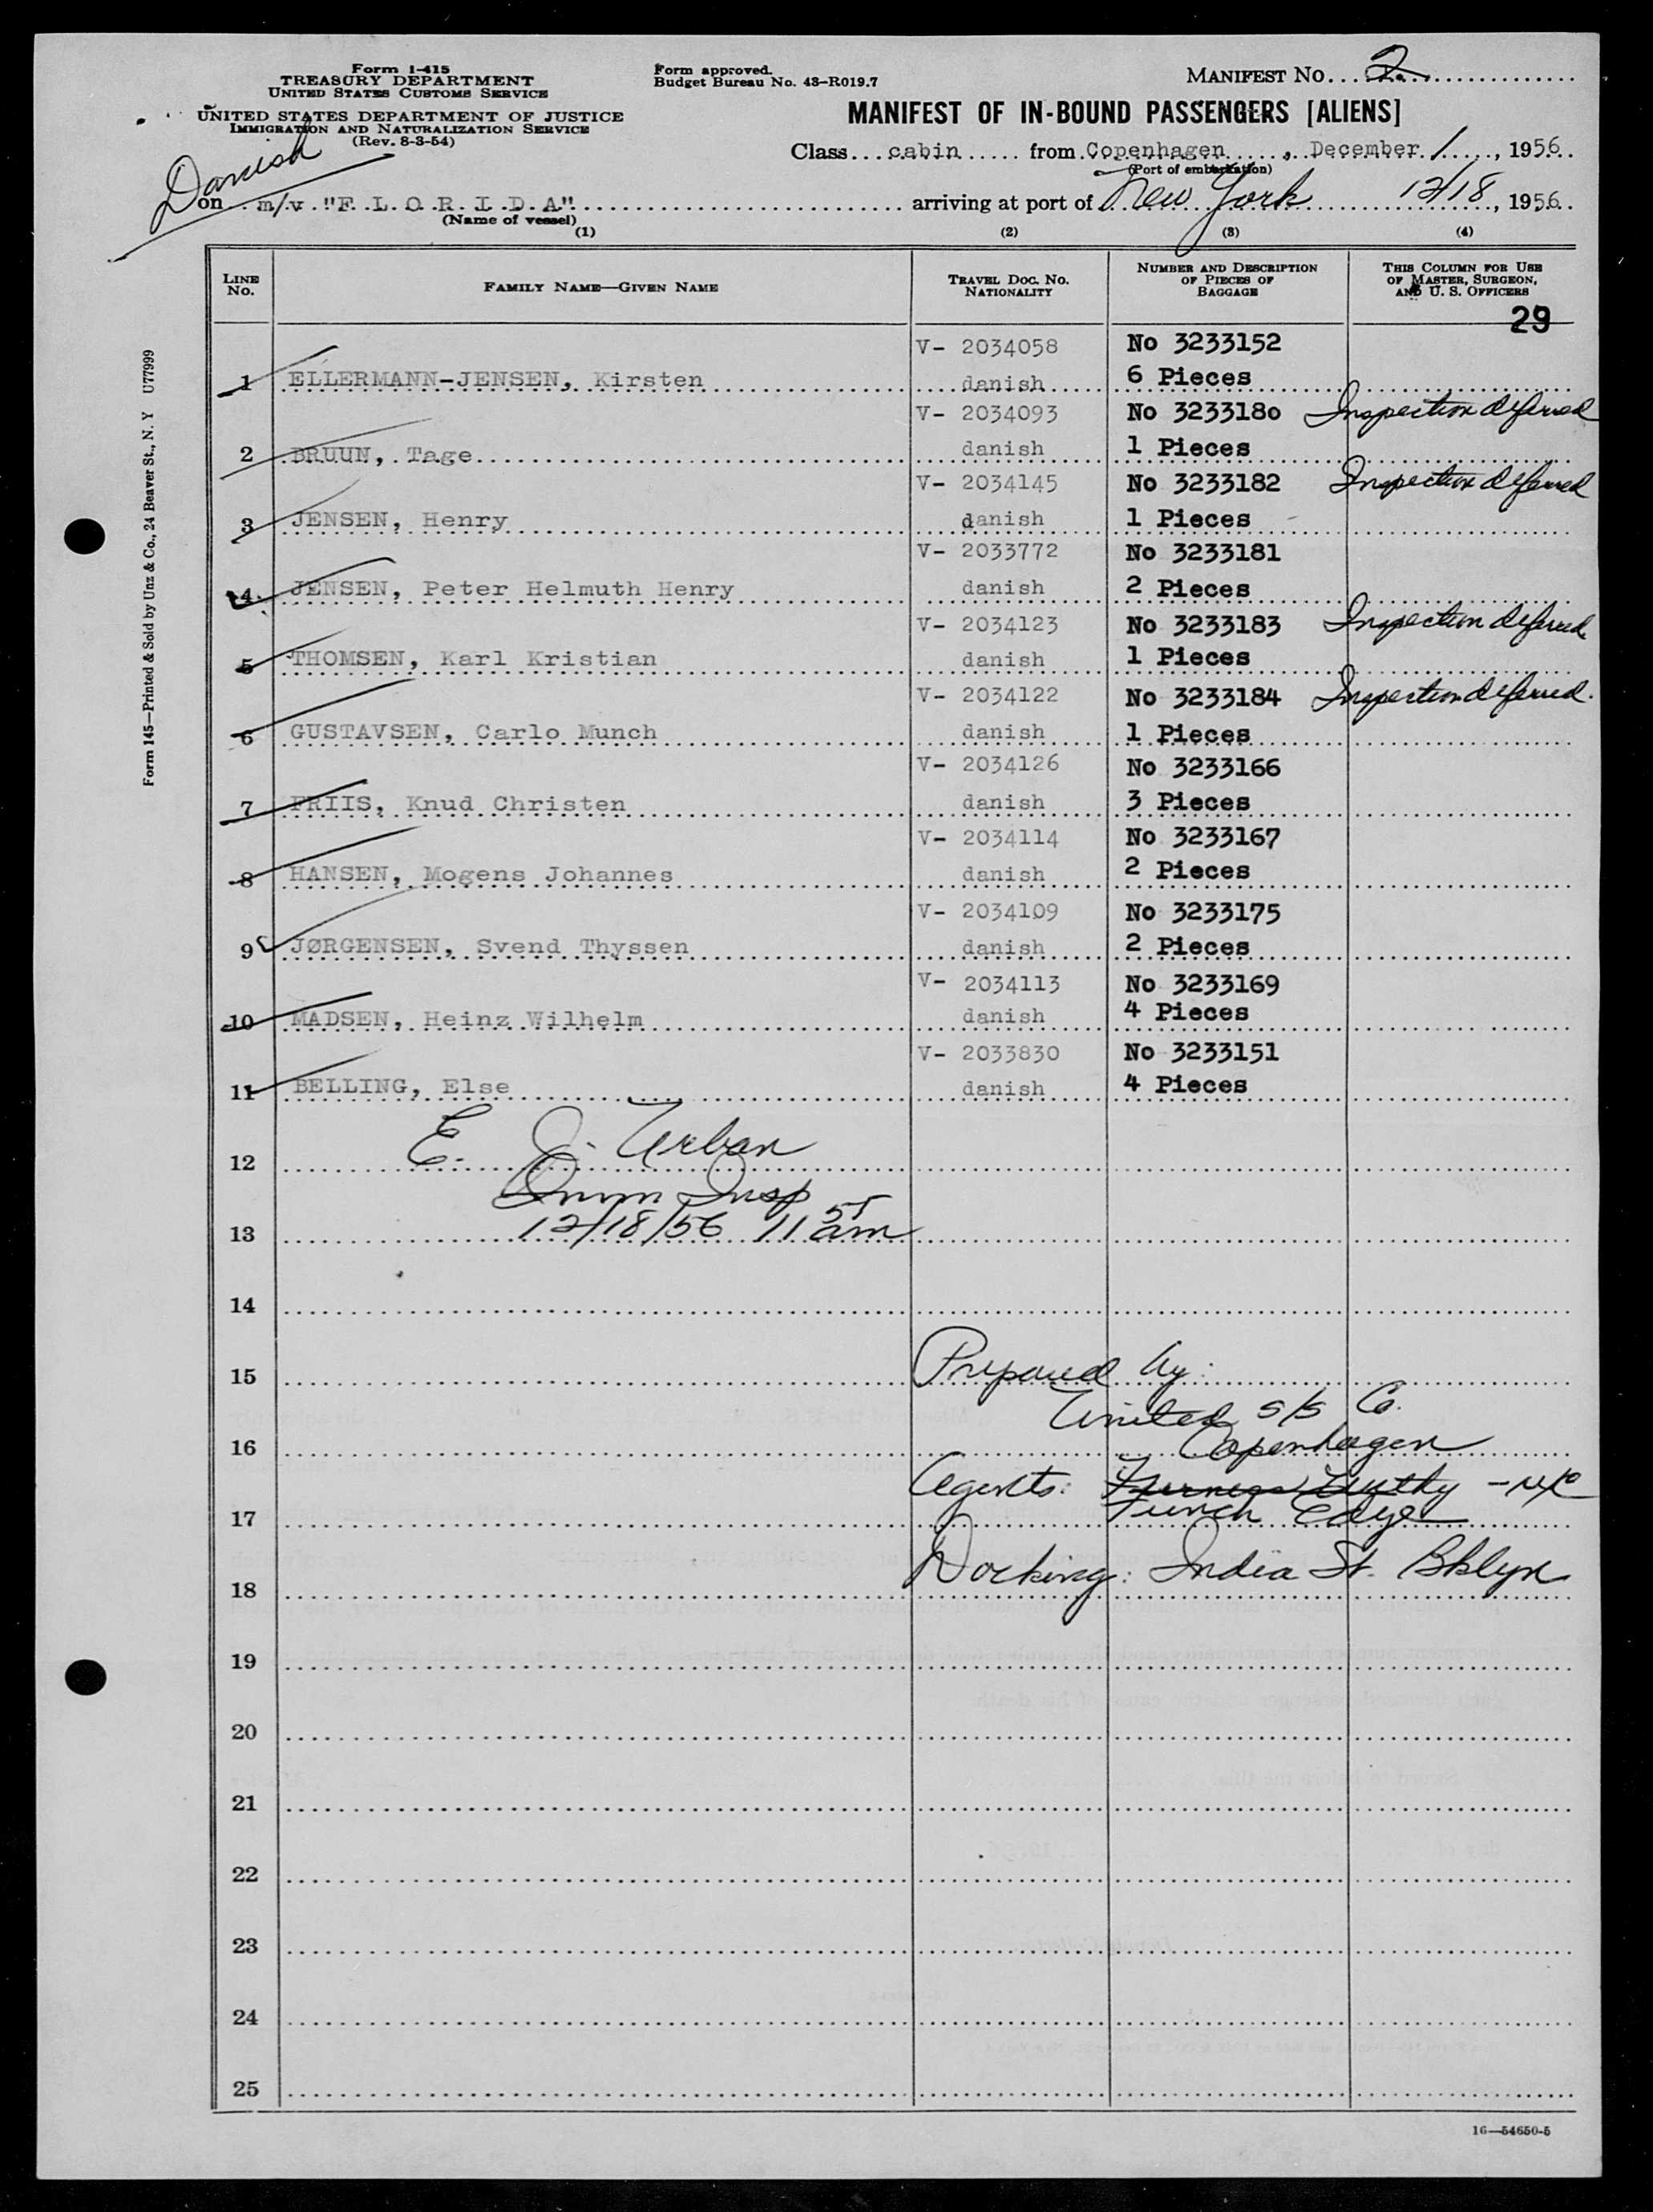 Form I-415
TREASURY DEPARTMENT
UNITED STATES CUSTOMS SERVICE
UNITED STATES DEPARTMENT OF JUSTICE
IMMIGRATION AND NATURALIZATION SERVICE
(Rev. 8-3-54)
Form approved.
Budget Bureau No. 43-R019.7
MANIFEST NO. 2
MANIFEST OF IN-BOUND PASSENGERS [ALIENS]
Class cabin from Copenhagen, December 1, 1956
(Port of embarkation)
Danish
on m/v "F L O R I D A" arriving at port of New York 12/18, 1956
(Name of vessel)
(1) (2) (3) (4)
LINE No. FAMILY NAME—GIVEN NAME TRAVEL DOC. NO. NATIONALITY NUMBER AND DESCRIPTION OF PIECES OF BAGGAGE THIS COLUMN FOR USE OF MASTER, SURGEON, AND U. S. OFFICERS
29
V- 2034058 No 3233152
1 ELLERMANN-JENSEN, Kirsten danish 6 Pieces
V- 2034093 No 3233180 Inspection deferred
2 BRUUN, Tage danish 1 Pieces
V- 2034145 No 3233182 Inspection deferred
3 JENSEN, Henry danish 1 Pieces
V- 2033772 No 3233181
4 JENSEN, Peter Helmuth Henry danish 2 Pieces
V- 2034123 No 3233183 Inspection deferred
5 THOMSEN, Karl Kristian danish 1 Pieces
V- 2034122 No 3233184 Inspection deferred.
6 GUSTAVSEN, Carlo Munch danish 1 Pieces
V- 2034126 No 3233166
7 FRIIS, Knud Christen danish 3 Pieces
V- 2034114 No 3233167
8 HANSEN, Mogens Johannes danish 2 Pieces
V- 2034109 No 3233175
9 JØRGENSEN, Svend Thyssen danish 2 Pieces
V- 2034113 No 3233169
10 MADSEN, Heinz Wilhelm danish 4 Pieces
V- 2033830 No 3233151
11 BELLING, Else danish 4 Pieces
E. J. Urban
12
Imm Insp
13 12/18/56 11 55 am
14
15 Prepared by:
United S/S Co.
16 Copenhagen
Agents: Furness Withy - N/C
17 Funch Edye
18 Docking: India St. Bklyn
19
20
21
22
23
24
25
16—54650-5
Form 145—Printed & Sold by Unz & Co., 24 Beaver St., N. Y U77999